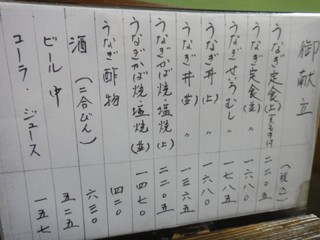 御献立
(税込)
うなぎ定食(上)
うなぎ定食(並) 〃 二二〇五
うなぎせいろむし 〃 一六八〇
うなぎ丼(上) 〃 一七八五
うなぎ丼(並) 〃 一六八〇
うなぎかば焼・塩焼(上) 一三六五
うなぎかば焼・塩焼(並) 二二〇五
うなぎ酢物 一四七〇
酒(二合びん) 四二〇
ビール中 六三〇
コーラ・ジュース 五二五
一五七